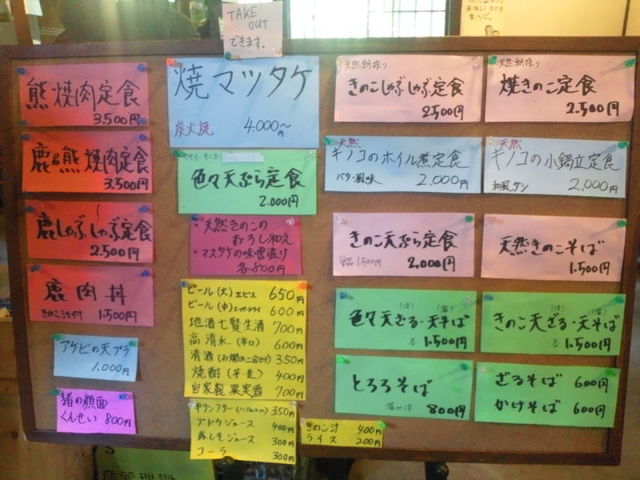 TAKE
OUT
できます。
熊焼肉定食
3.500円
鹿&熊焼肉定食
3.500円
鹿しゃぶしゃぶ定食
2.500円
鹿肉丼
きのこ汁付 1.500円
アケビの天プラ
1.000円
猪の顔面
くんせい 800円
焼マツタケ
炭火焼 4.000~円
色々天ぷら定食
2.000円
・天然きのこの
おろし和え
・マスタケの味噌漬り
各800円
ビール(大)ヱビス 650円
ビール(中) 600円
地酒七賢生酒 700円
高清水(辛口) 600円
清酒 350円
焼酎(芋・麦) 400円
自家製果実酒 700円
キリンフリー 350円
ブドウジュース 400円
赤しそジュース 300円
コーラ 300円
きのこ汁 400円
ライス 200円
天然朝採り
きのこしゃぶしゃぶ定食
2.500円
天然朝採り
焼きのこ定食
2.500円
天然
キノコのホイル煮定食
バター風味 2.000円
天然
キノコの小鍋立定食
和風ダシ 2.000円
きのこ天ぷら定食
単品1.500円 2.000円
天然きのこそば
1.500円
色々天ざる・天そば
各1.500円
きのこ天ざる・天そば
各1.500円
とろろそば
800円
ざるそば 600円
かけそば 600円